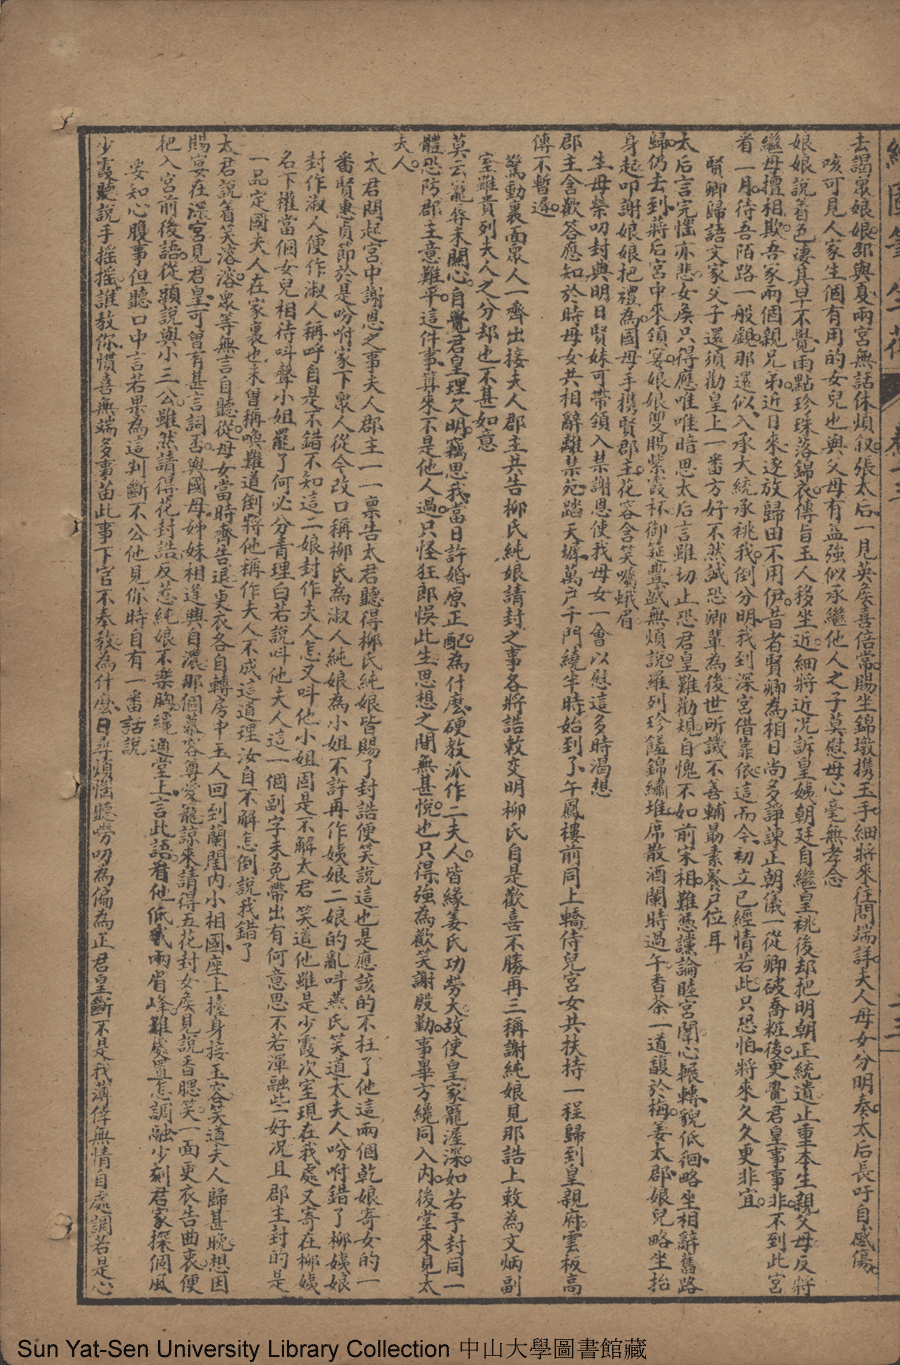 去謁眾娘娘部與夏雨宮無話休煩叙張太后一見英矦喜倍常賜坐錦墩携玉手細將來往問端詳夫人母女分明奏太后長吁自感傷
咳可見人家生個有用的女兒也與父母有益強似承繼他人之子莫慰母心毫無孝念
娘娘說着色凄其早不覺雨點珍珠落錦衣傳旨玉人移坐近細將近况訴皇姨朝廷自繼皇祧後却把明朝正統遺止重本生親父母反將
繼母擅相欺吾家兩個親兄弟近日來逐放歸田不用伊昔者賢卿為相日尚多諍諫正朝儀一從卿破喬粧後更覺君皇事事非不到此宮
看一月待吾陌路一般覷那還似入承大統承祧我倒分明我到深宮借靠依這而今初立已經情若此只恐怕將來久久更非宜
賢卿歸語文家父子還須勸皇上一番方好不然誠恐卿輩為後世所譏不善輔勗素餐尸位耳
太后言完慍亦悲女矦只得應唯唯暗思太后言雖切止恐君皇難勸規自愧不如前宋相難慿讜論睦宮闈心輾轉貌低徊略坐相辭舊路
歸仍去到蔣后宮中來領宴娘娘雙賜紫霞杯御筵豐盛無煩說羅列珍饈錦繡堆席散酒闌時過午香茶一道護於梅姜太郡娘兒略坐抬
身起叩謝娘娘把禮為國母手携賢郡主花容含笑囑蛾眉
生母榮叨封典明日賢妹可帶領入禁謝恩使我母女一會以慰這多時渴想
郡主含歡答應知於時母女共相辭離禁苑踏天墀萬户千門繞半時始到了午鳳樓前同上轎侍兒宮女共扶持一程歸到皇親府雲板高
傳不暫遲
驚動裏面眾人一齊出接夫人郡主共告柳氏純娘請封之事各將誥敕交明柳氏自是歡喜不勝再三稱謝純娘見那誥上敕為文炳副
室雖貴列夫人之分却也不甚如意
莫云寵辱未關心自覺君皇理欠明竊思我當日許婚原正配為什麼硬教派作二夫人皆緣姜氏功勞大故使皇家寵渥深如若予封同一
體恐防郡主意難平這件事算來不是他人過只怪狂郎悞此生思想之間無甚悅也只得強為歡笑謝殷勤事畢方纔同入內後堂來見太
夫人
太君問起宮中謝恩之事夫人郡主一一稟告太君聽得柳氏純娘皆賜了封誥便笑說這也是應該的不枉了他這兩個乾娘寄女的一
番賢惠貞節於是吩咐家下眾人從今改口稱柳氏為淑人純娘為小姐不許再作姨娘二娘的亂呌燕氏笑道太夫人吩咐錯了柳姨娘
封作淑人便作淑人稱呼自是不錯不知這二娘封作夫人怎又呌他小姐固是不解太君笑道他雖是少霞次室現在我處又寄在柳姨
名下權當個女兒相待呌聲小姐罷了何必分青理白若說呌他夫人這一個副字未免帶出有何意思不若渾融些好况且郡主封的是
一品定國夫人在家裏也未曾稱喚難道倒將他稱作夫人不成這道理汝自不解怎倒說我錯了
太君說着笑溶溶眾等無言自聽從母女當時齊告退更衣各自轉房中玉人回到蘭閨內小相國座上擡身接玉容笑道夫人歸甚晚想因
賜宴在深宮見君皇可曾有甚言詞否與國母姊妹相逢興自濃那個慕容尊愛寵諒來請得五花封女矦見說香腮笑一面更衣告曲衷便
把入宮前後語從頭說與小三公雖然請得花封誥反惹純娘不樂胸纔適堂上言此語看他低戢兩眉峰雖處置怎調融少刻君家探個風
妥知心腹事但聽口中言若果為這判斷不公他見你時自有一番話說
少霞聽說手搖搖誰教你慣喜無端多事苗此事下官不奉教為什麼日尋煩惱聽嘮叨為偏為正君皇斷不是我薄倖無情自處調若是心